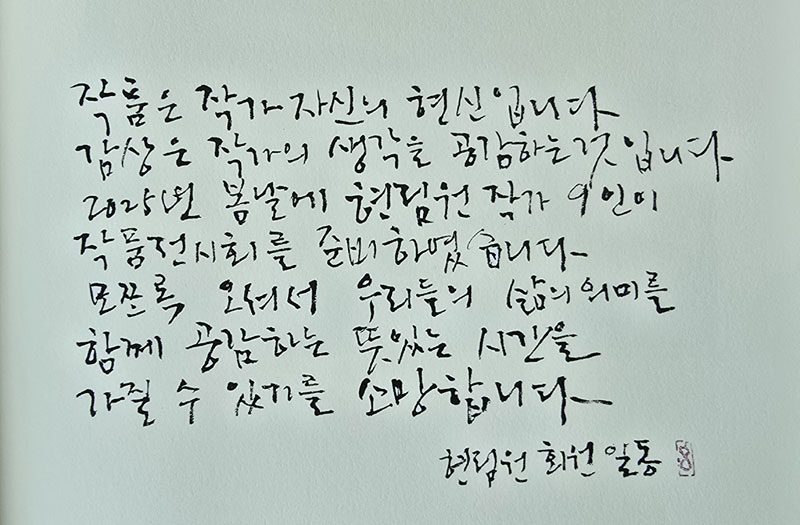 작품은 작가 자신의 현신입니다
감상은 작가의 생각을 공감하는것 입니다
2025년 봄날에 현림원 작가 9인이
작품전시회를 준비하였습니다
모쪼록 오셔서 우리들의 삶의 의미를
함께 공감하는 뜻있는 시간을
가질 수 있기를 소망합니다
현림원 회원 일동